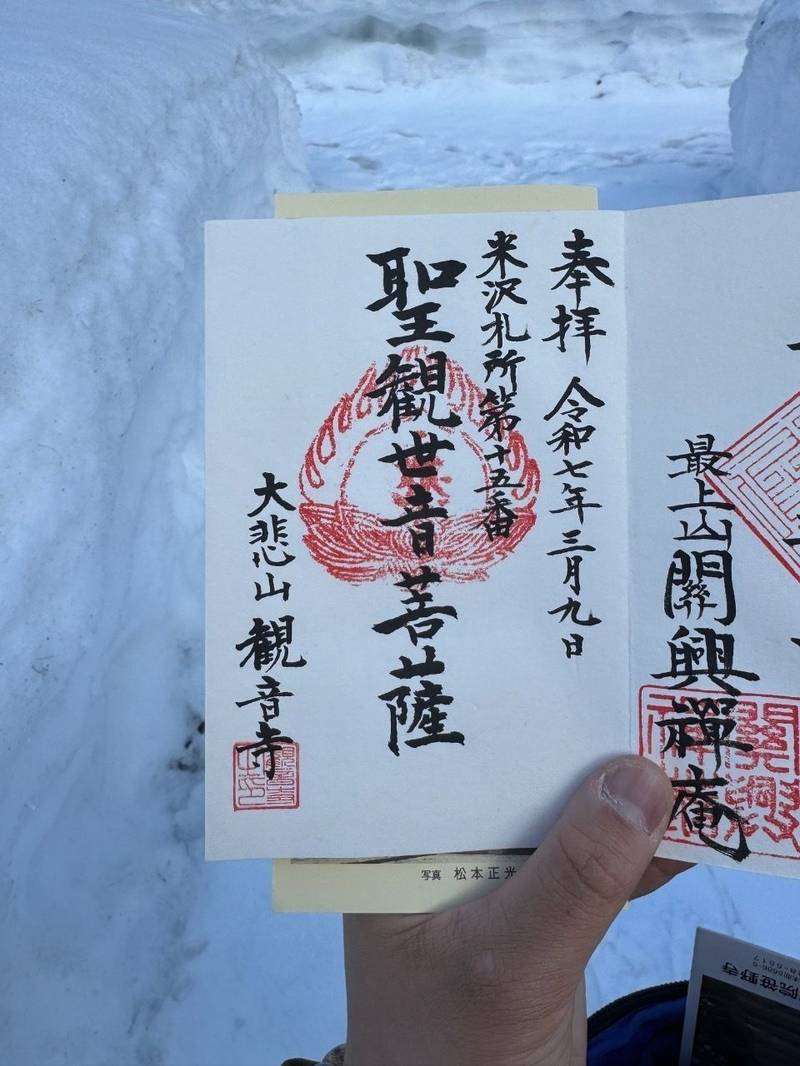 最上山關興禪庵
奉拝 令和七年三月九日
米沢札所第十五番
聖観世音菩薩
大悲山観音寺
写真 松本正光
院笹野寺